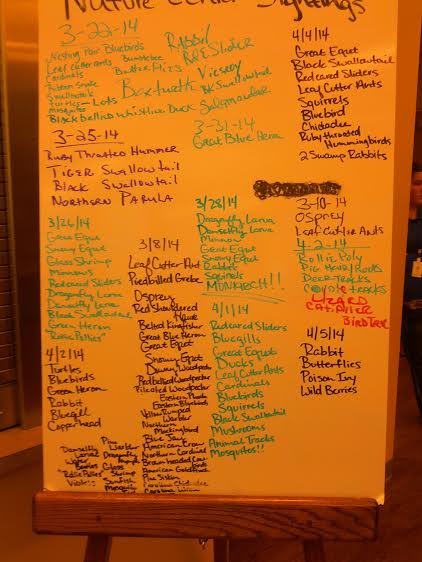 Nature Center Sightings
3-22-14
Nesting Pair Bluebirds
Leaf cutter ants
Cardinals
Ribbon Snake
Swallowtails
turtles - Lots
mosquitos
Black bellied whistling Duck
Bumblebee
Butterflies
Box turtle
RABBIT
RE SLIDER
Viceroy
BK Swallowtail
Salamander
3-25-14
Ruby Throated Hummer
Tiger Swallowtail
Black Swallowtail
Northern Parula
3-31-14
Great Blue Hern
4/4/14
Great Egret
Black Swallowtail
Redeared Sliders
Leaf Cutter Ants
Squirrels
Bluebird
Chickadee
Ruby throated
Hummingbirds
2 Swamp Rabbits
3/26/14
Great Egret
Snowy Egret
Glass Shrimp
Minnows
Redeared Sliders
Dragonfly Larva
Damselfly Larva
Black Swallowtail
Green Heron
"Rollie Pollies"
4/2/14
Turtles
Bluebirds
Green Heron
Rabbit
Bluegill
Copperhead
3/8/14
Leaf Cutter Ant
Piedbilled Grebe
Osprey
Red Shouldered
Hawk
Belted Kingfisher
Great Blue Heron
Great Egret
Snowy Egret
Downy Woodpecker
Redbellied Woodpecker
Pileated Woodpecker
Eastern Phoebe
Eastern Bluebirds
Yellow Rumped
Warbler
Northern
Mockingbird
Blue Jay
American Crow
Northern Cardinal
Brown headed Cow
birds
American Goldfinch
Pine Siskin
Carolina Chickadee
Carolina Wren
Pine
Warbler
Damselfly
Larvae
Dragonfly
Water
Beetles
Glass
Shrimp
Sunfish
Mosquito
3/28/14
Dragonfly Larva
Damselfly Larva
Minnows
Great Egret
Snowy Egret
Rabbit
Squirrels
MONARCH!!
4/1/14
Redeared Sliders
Bluegills
Great Egret
Ducks
Leaf Cutter Ants
Cardinals
Bluebirds
Squirrels
Black Swallowtail
Mushrooms
Animal Tracks
Mosquitos!!
3-10-14
Osprey
Leaf Cutter Ants
4-2-14
Rollie Poly
Deer Tracks
Coyote tracks
LIZARD
CATAPILLER
BIRD
4/5/14
Rabbit
Butterflies
Poison Ivy
Wild Berries